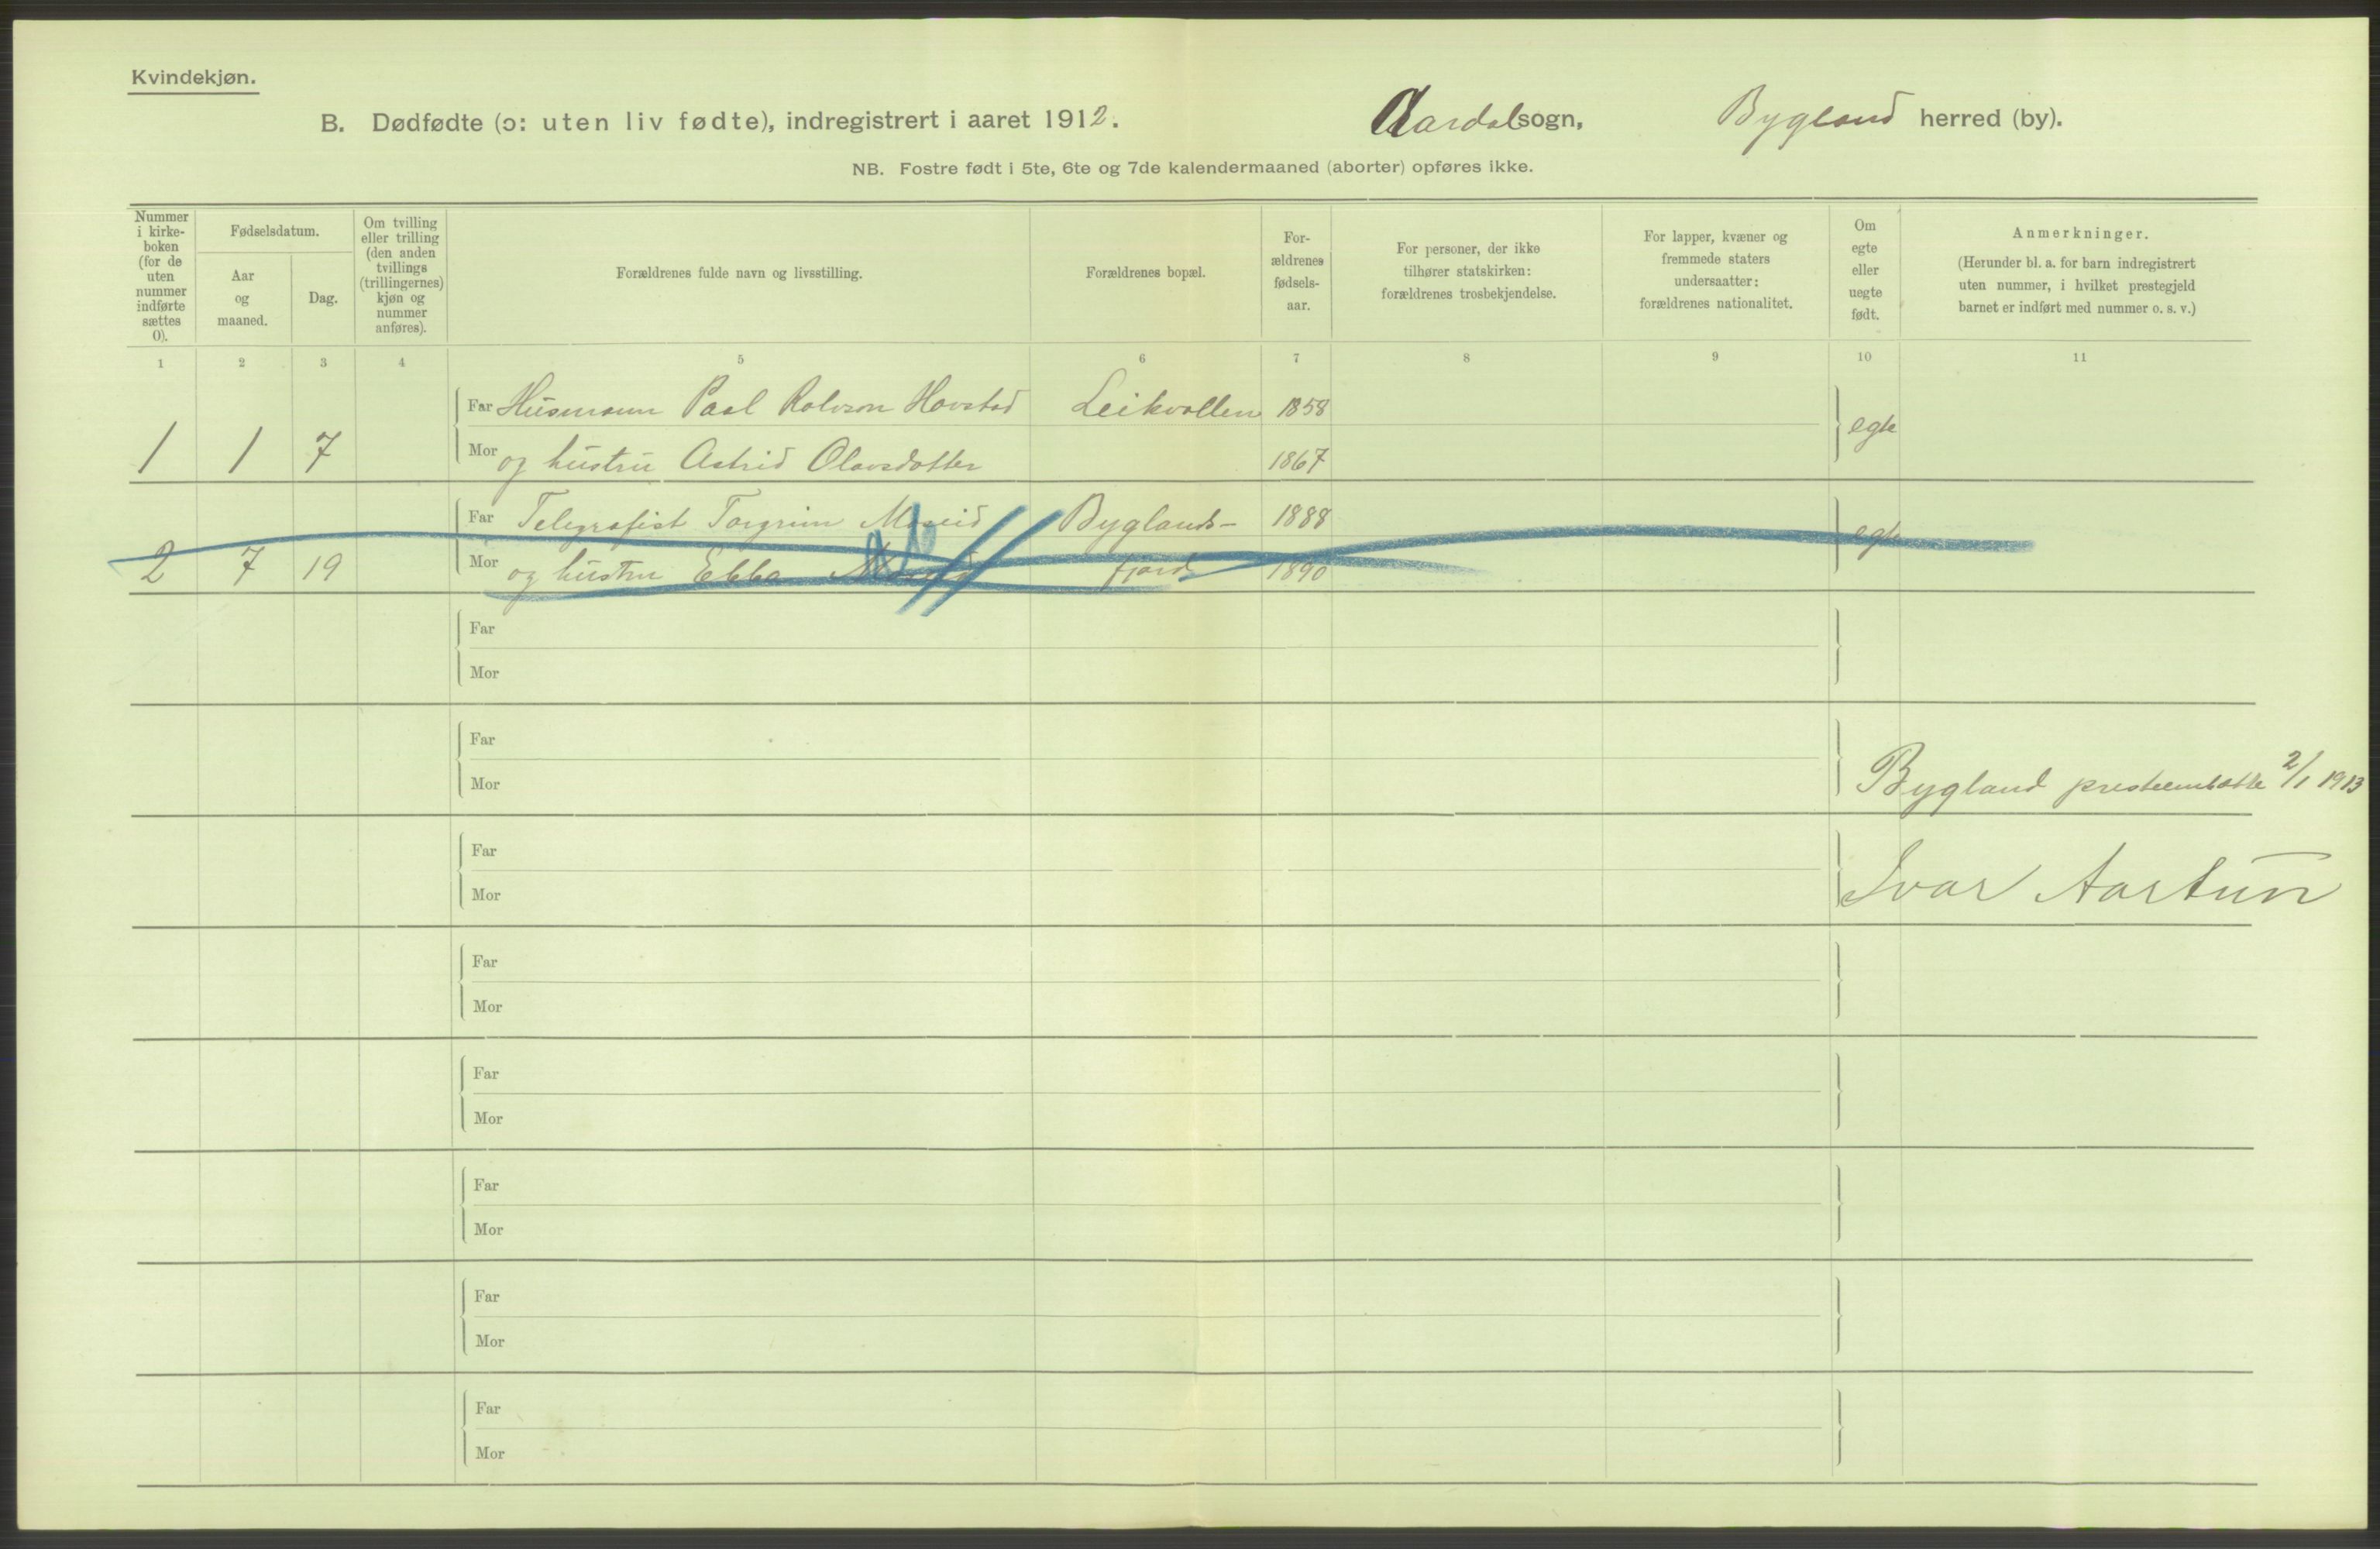 Kvindekjøn.
B. Dødfødte (ɔ: uten liv fødte), indregistrert i aaret 1912. Aardal sogn, Bygland herred (by).
NB. Fostre født i 5te, 6te og 7de kalendermaaned (aborter) opføres ikke.
Nummer i kirke-boken (for de uten nummer indførte sættes 0).
Fødselsdatum.
Aar og maaned.
Dag.
Om tvilling eller trilling (den anden tvillings (trillingernes) kjøn og nummer anføres).
Forældrenes fulde navn og livsstilling.
Forældrenes bopæl.
For-ældrenes fødsels-aar.
For personer, der ikke tilhører statskirken: forældrenes trosbekjendelse.
For lapper, kvæner og fremmede staters undersaatter: forældrenes nationalitet.
Om egte eller uegte født.
Anmerkninger.
(Herunder bl. a. for barn indregistrert uten nummer, i hvilket prestegjeld barnet er indført med nummer o. s. v.)
1 2 3 4 5 6 7 8 9 10 11
Far Husmann Paal Rolvson Hovstad Leikvollen 1858
1 1 7 egte
Mor og hustru Astrid Olavsdotter 1867
Far Telegrafist Torgrim Moseid Byglands- 1888
2 7 19 egte
Mor og hustru Ebba fjord 1890
Far
Mor
Far
Mor
Bygland presteembætte 2/1 1913
Far
Mor
Ivar Aartun
Far
Mor
Far
Mor
Far
Mor
Far
Mor
Far
Mor